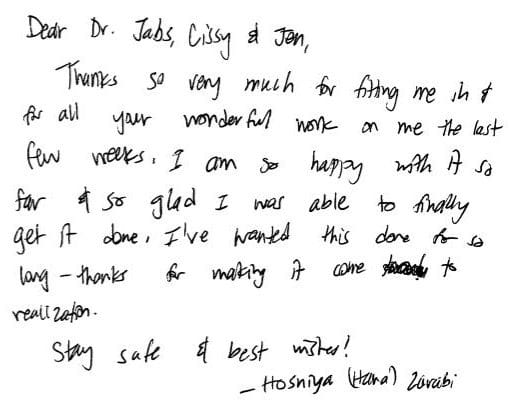 Dear Dr. Jabs, Cissy & Jen,
Thanks so very much for fitting me in &
for all your wonderful work on me the last
few weeks. I am so happy with it so
far & so glad I was able to finally
get it done. I've wanted this done for so
long - thanks for making it come to
realization.
Stay safe & best wishes!
- Hosniya (Hana) Zarabi